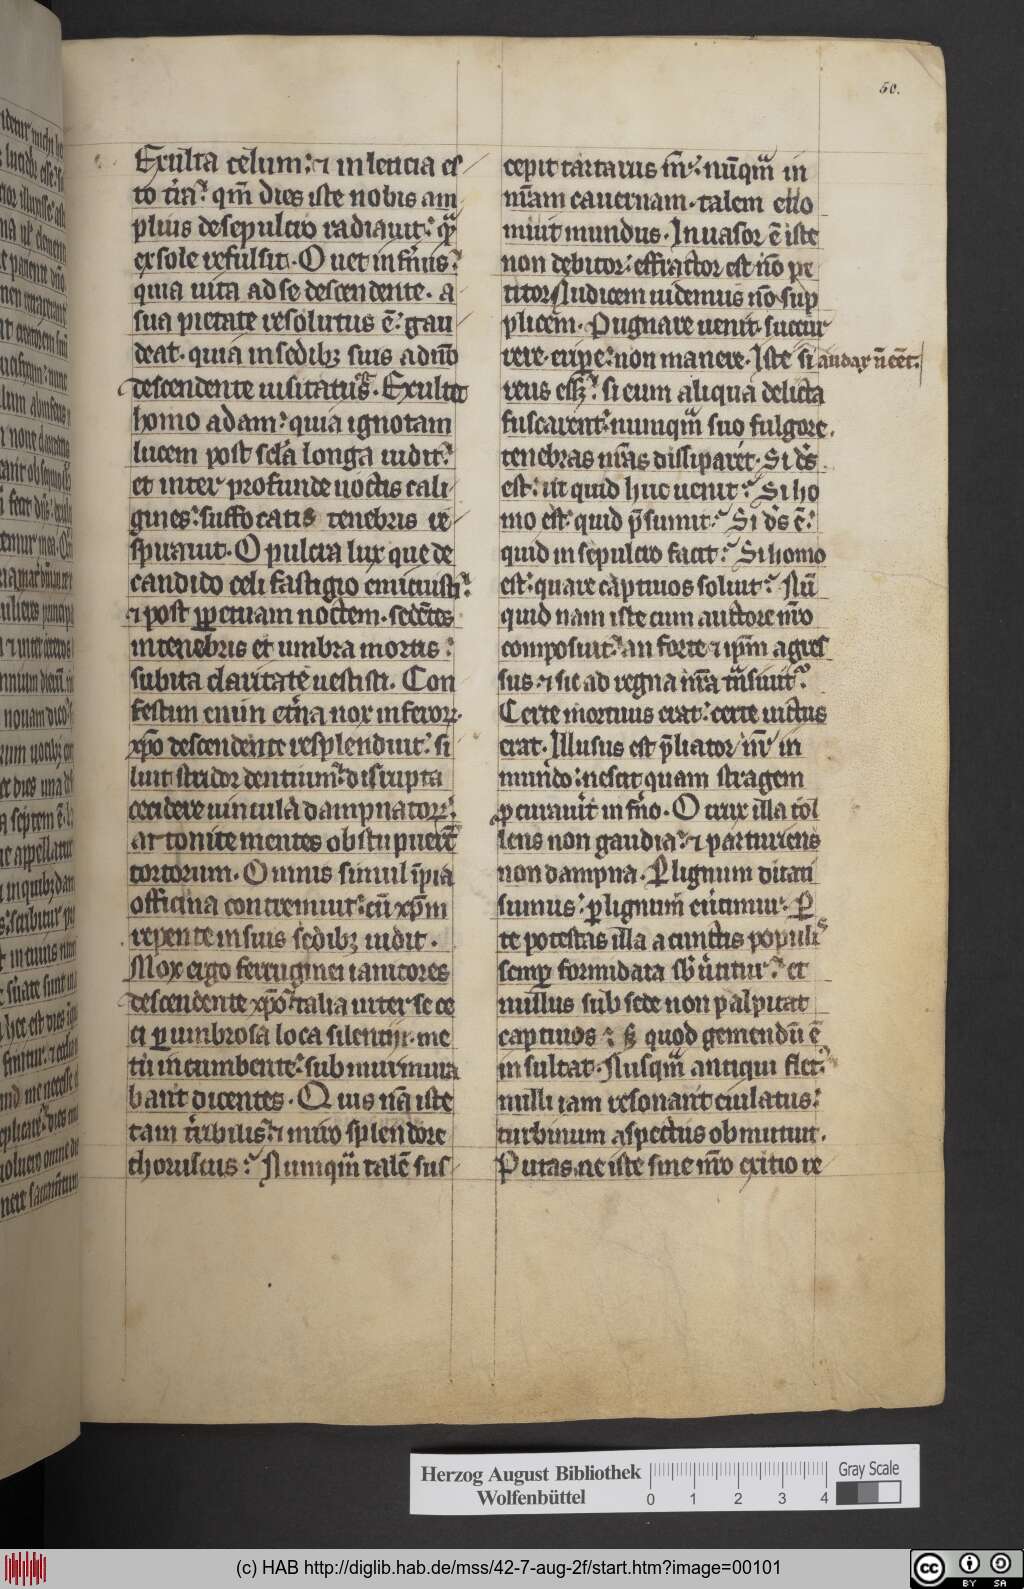 50.
Exulta celum: ⁊ in leticia es
to t̃ra: qm̃ dies iste nobis am
plius de sepulcro radiauit: q̃
ex sole refulsit. Ouet infernus:
quia uita ad se descendente. a
sua pietate resolutus ẽ: gau
deat. quia in sedibꝫ suis a dño
descendente uisitatus. Exultet
homo adam: quia ignotam
lucem post sc̃la longa uidit:
et inter profunde noctis cali
gines: suffocatis tenebris re
spirauit. O pulcra lux que de
candido celi fastigio emicuisti:
⁊ post ꝑpetuam noctem. sedẽtes
in tenebris et umbra mortis:
subita claritate uestisti. Con
festim enim et̃na nox inferoꝝ.
xp̃o descendente resplenduit: si
luit stridor dentium: disrupta
cecidere uincula dampnatoꝝ.
attonite mentes obstupuerẽt
tortorum. Omnis simul ĩpia
officina contremuit: cũ xp̃m
repente in suis sedibꝫ uidit.
Mox ergo ferruginei ianitores
descendente xp̃o: talia inter se ce
ci ꝑ umbrosa loca silentij. me
tu incumbente: sub murmura
bant dicentes. Quis nã iste
tam t̃ribilis: ⁊ miro splendore
choruscus: Numqm̃ talẽ sus
cepit tartarus nr̃: nũqm̃ in
nr̃am cauernam. talem euo
muit mundus. Inuasor ẽ iste
non debitor: effractor est nõ pe
titor. Iudicem uidemus nõ sup
plicem. Pugnare uenit. succur
rere. eripe: non manere. Iste si audax ñ eẽt.
reus esset: si eum aliqua delicta
fuscarent: numqm̃ suo fulgore.
tenebras nr̃as dissiparet. Si ds̃
est: ut quid huc uenit: Si ho
mo est: quid p̃sumit: Si ds̃ ẽ:
quid in sepulcro facit: Si homo
est: quare captiuos soluit: Nũ
quid nam iste cum auctore nr̃o
composuit: an forte ⁊ ip̃m agres
sus. ⁊ sic ad regna nr̃a t̃nsiuit:
Certe mortuus erat: certe uictus
erat. Illusus est p̃liator nr̃ in
mundo: nescit quam stragem
ꝓcurauit in inf̃no. O crux illa tol
lens non gaudia: ⁊ parturiens
non dampna. Per lignum ditati
sumus: ꝑ lignum euertimur. Pe
te potestas illa a cunctis populis
semꝑ formidata sb̃uertitur: et
nullus sub sede non palpitat
captiuos: sꝫ quod gemendũ ẽ
insultat. Nusqm̃ antiqui flet:
nulli iam resonant eiulatus:
turbinum aspectus obmutuit.
Putas ne iste sine nr̃o exitio re
Herzog August Bibliothek
Wolfenbüttel
0 1 2 3 4
Gray Scale
(c) HAB http://diglib.hab.de/mss/42-7-aug-2f/start.htm?image=00101
cc BY SA